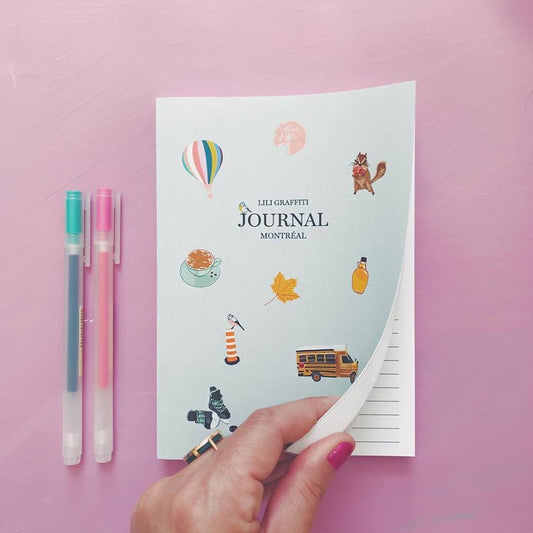 LILI GRAFFITI
JOURNAL
MONTRÉAL